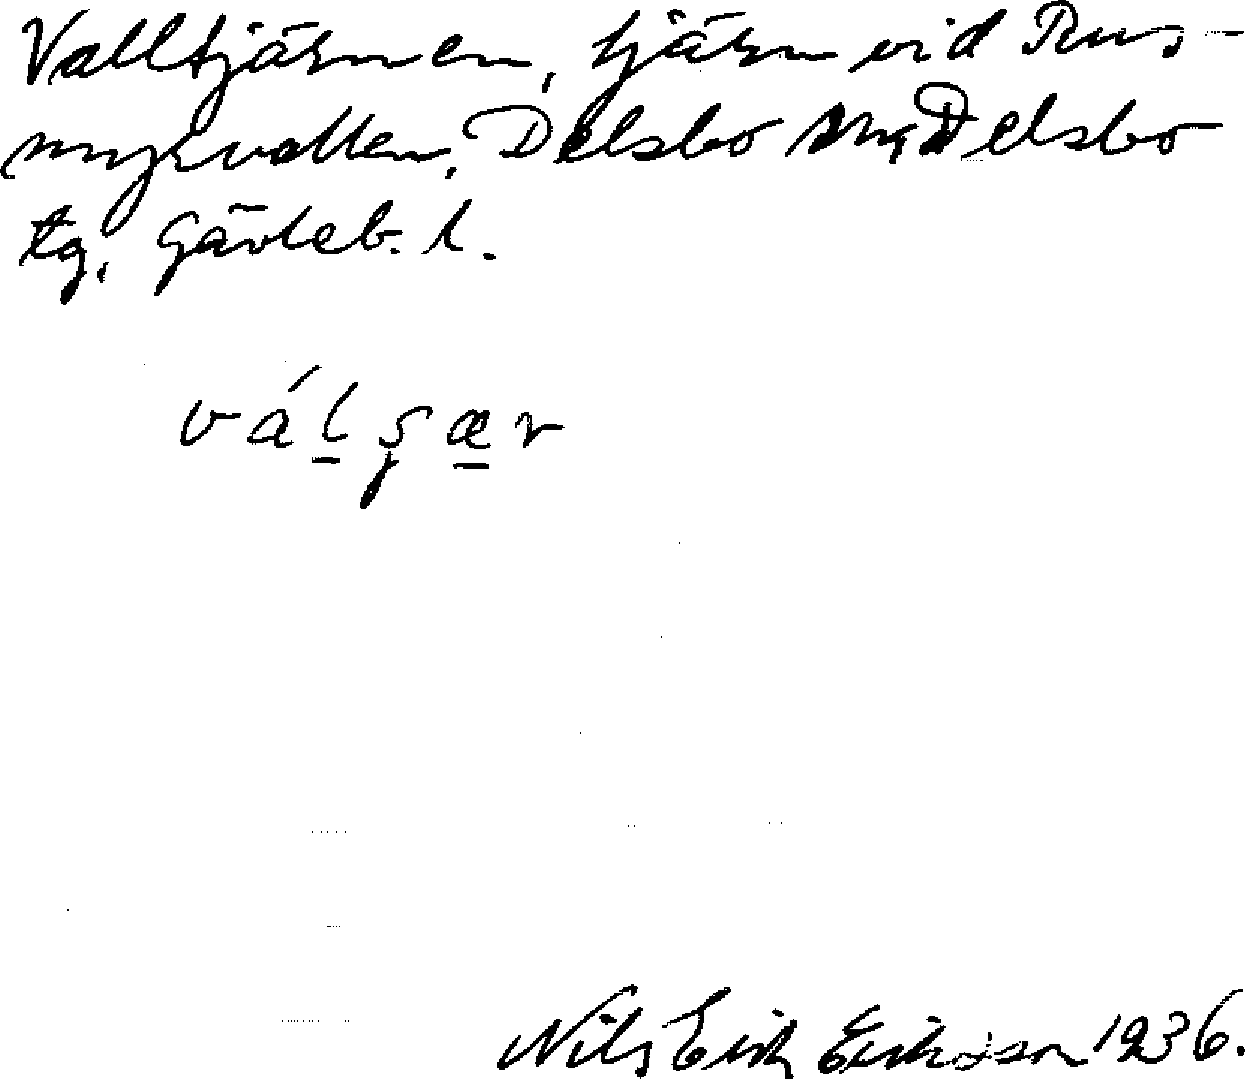 Valltjärnen, tjärn vid Rus-
myrvallen, Delsbo sn, Delsbo
tg, Gävleb. l.
váḻʂæ̱r
Nils Erik Eriksson 1936.